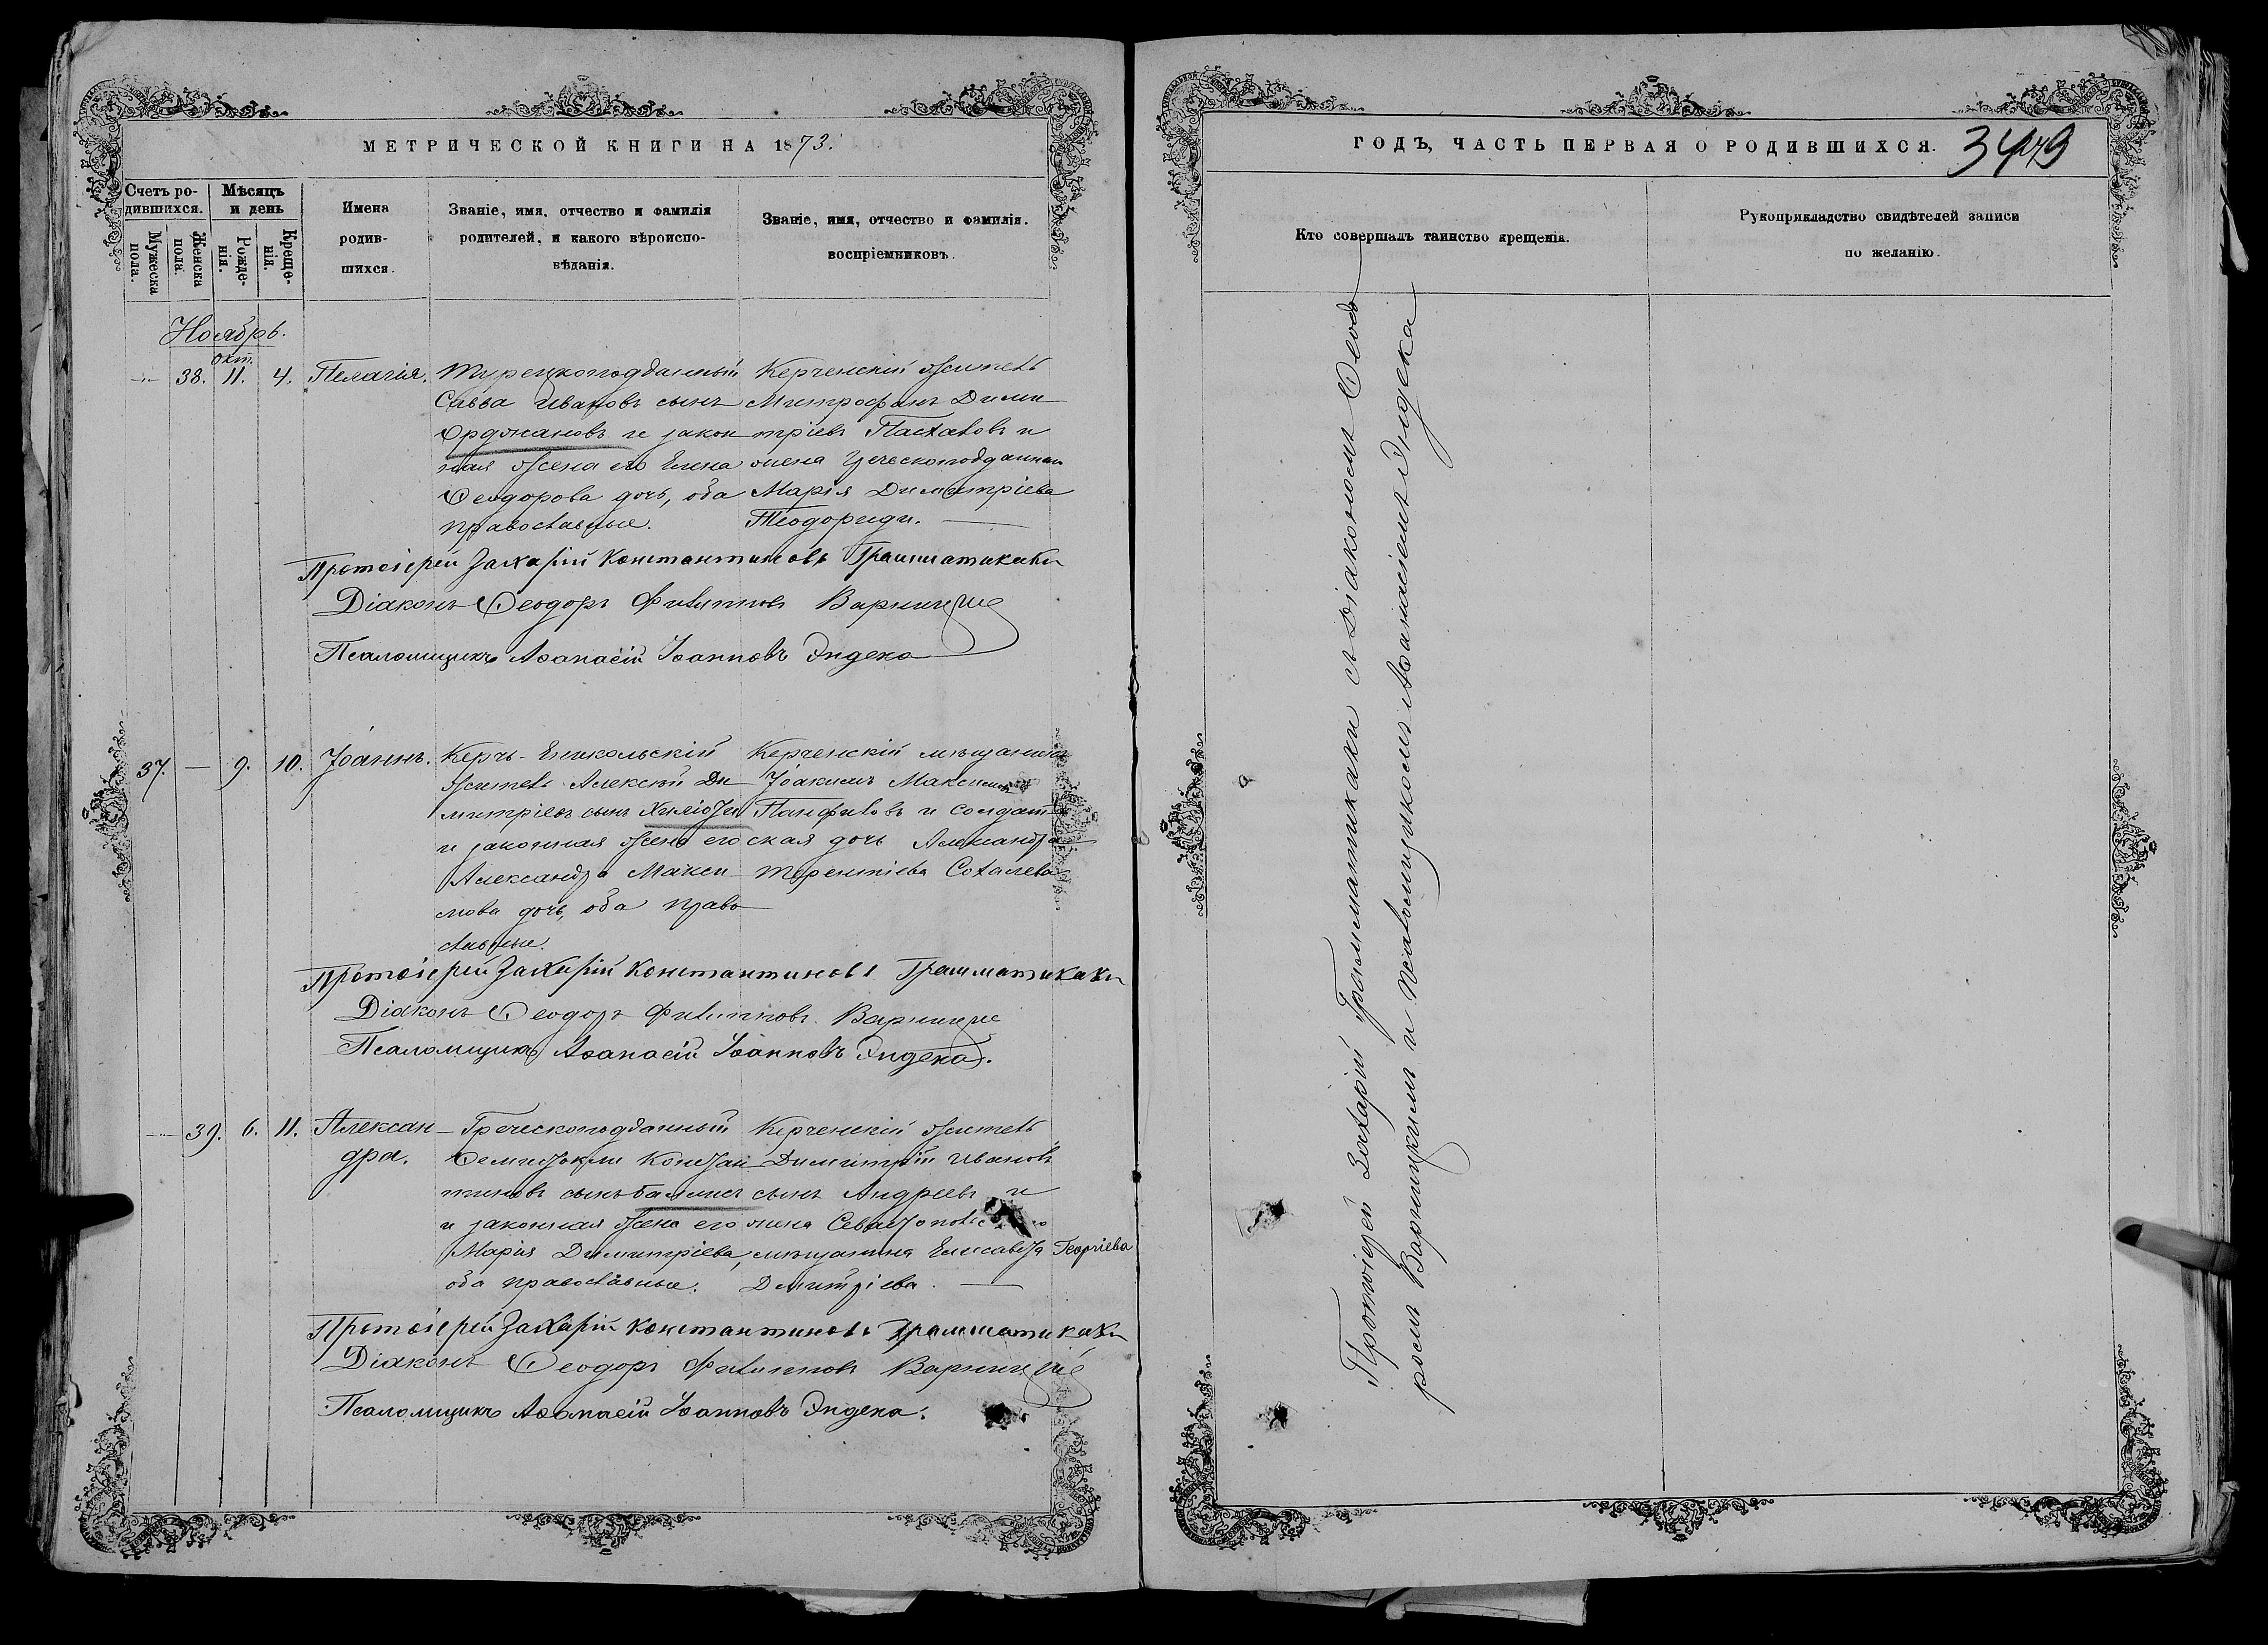 МЕТРИЧЕСКОЙ КНИГИ НА 1873.
Счетъ родившихся.
Мужеска пола.
Женска пола.
Мѣсяцъ и день
Рожденія.
Крещенія.
Имена родившихся.
Званіе, имя, отчество и фамилія
родителей, и какого вѣроиспо-
вѣданія.
Званіе, имя, отчество и фамилія.
воспріемниковъ.
Ноябрь.
окт.
38. 11. 4. Пелагія.
Турецкоподданный
Савва Ивановъ сынъ
Орджановъ и закон
ная жена его Елена
Ѳеодорова дочь, оба
православные.
Керченскій житель
Митрофанъ Дими
тріевъ Пасхаловъ и
жена Греческоподданнаго
Марія Димитріева
Теодориди.
Протоіерей Захарій Константиновъ Грамматикаки
Діаконъ Ѳеодоръ Филипповъ
Псаломщикъ Аѳанасій Іоанновъ Эндека
37. — 9. 10. Іоаннъ.
Керчь-Еникольскій
житель Алексѣй Ди
митріевъ сынъ
и законная жена его
Александра Макси
мова дочь, оба право
славные.
Керченскій мѣщанинъ
Іоакимъ Максимовъ
Панфиловъ и солдат
ская дочь Александра
Терентіева
Протоіерей Захарій Константиновъ Грамматикаки
Діаконъ Ѳеодоръ Филипповъ
Псаломщикъ Аѳанасій Іоанновъ Эндека.
39. 6. 11. Алексан
дра.
Греческоподданный
Ѳемистокли Констан
тиновъ сынъ
и законная жена его
Марія Димитріева,
оба православные.
Керченскій житель
Димитрій Ивановъ
сынъ Андреевъ и
жена
мѣщанина Елисавета Георгіева
Дмитріева.
Протоіерей Захарій Константиновъ Грамматикаки
Діаконъ Ѳеодоръ Филипповъ
Псаломщикъ Аѳанасій Іоанновъ Эндека.
ГОДЪ, ЧАСТЬ ПЕРВАЯ О РОДИВШИХСЯ.
Кто совершалъ таинство крещенія.
Рукоприкладство свидѣтелей записи
по желанію.
Протоіерей Захарій Грамматикаки съ Діакономъ Ѳеодо
ромъ и псаломщикомъ Аѳанасіемъ Эндека